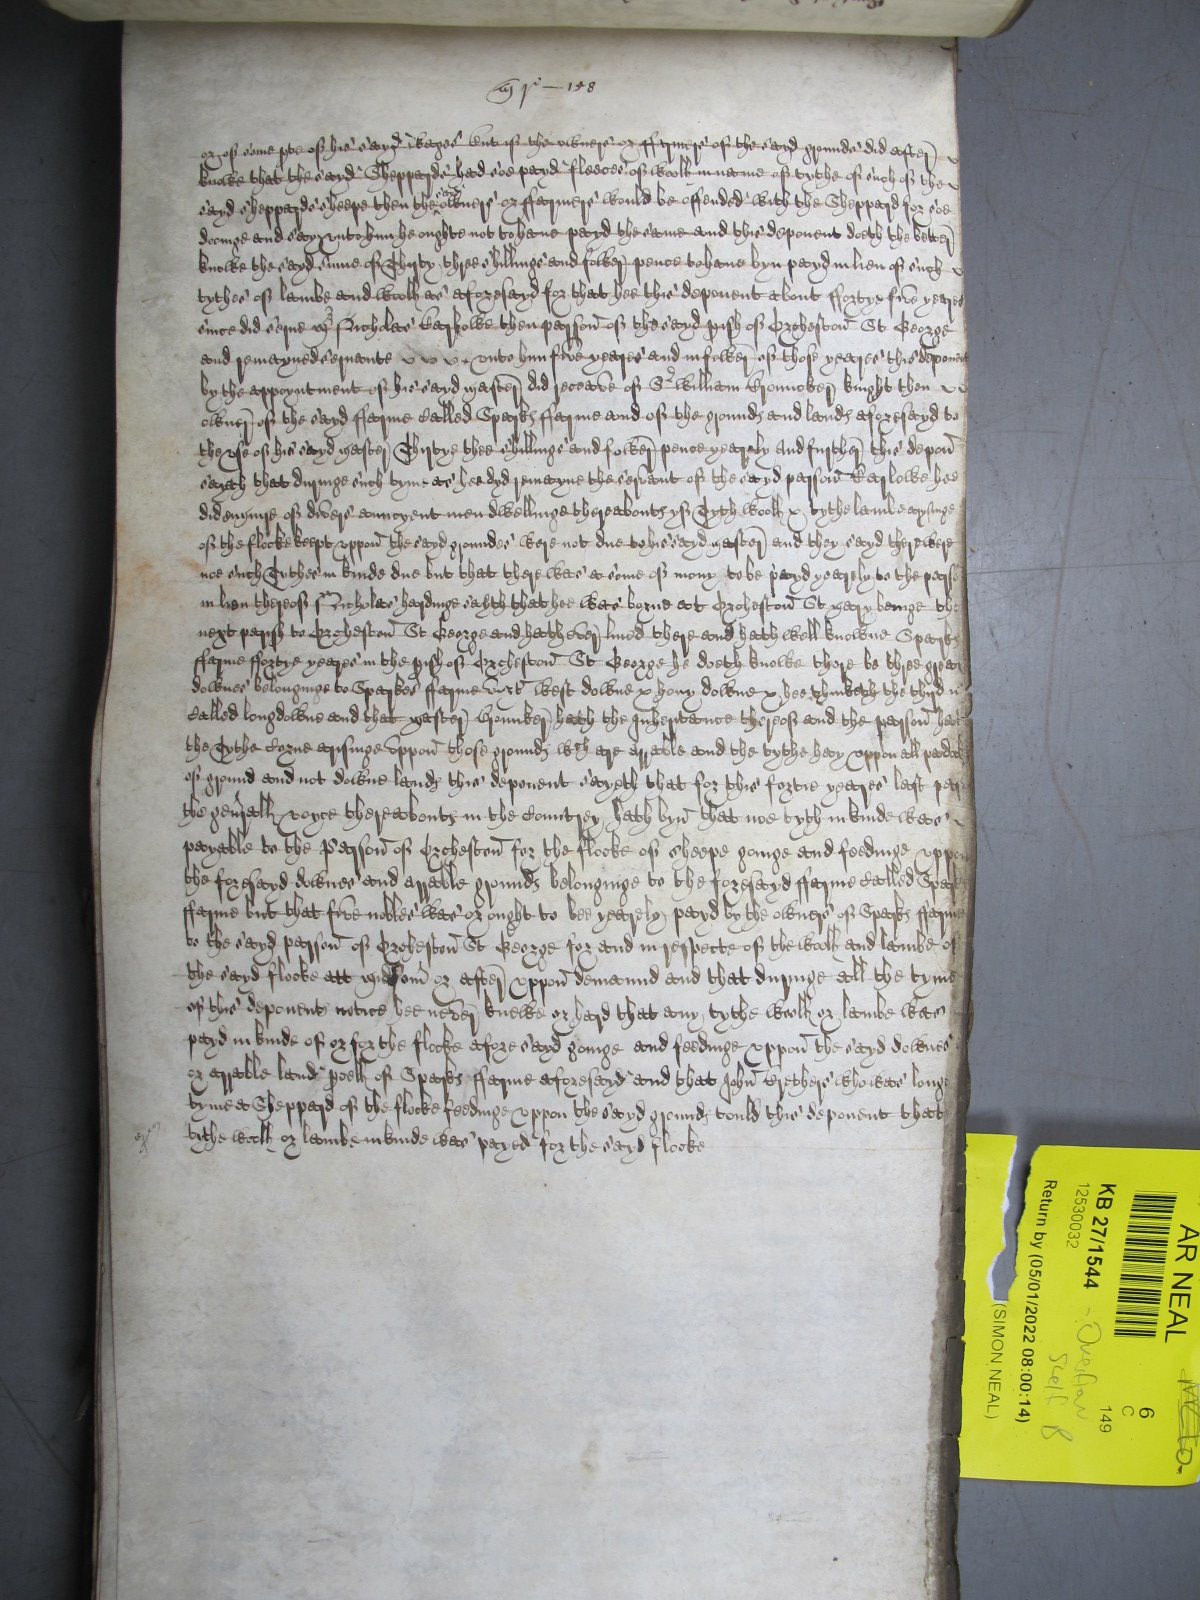 148
or of some pte of his sayd wages but if the owners or ffarmers of the sayd grounds did after
knowe that the sayd Sheppards had soe payd fleeces of wooll in name of tythe of such of the
sayd sheppards sheepe then the sayd owners or ffarmers would be offended with the Sheppard for soe
doeinge and say unto him he oughte not to have payd the same and this deponent doeth the better
knowe the sayd sume of Thirty three shillings and fower pence to have byn payd in lieu of such
tythes of lambe and wooll as aforesayd for that hee this deponent about fforty five yeares
since did serve Nicholas then parson of the sayd pish of Orcheston St George
and remayned servante unto him five yeares and in fower of those yeares this deponent
by the appoyntment of his sayd master did receave of Sr William Brouncker knight then
owner of the sayd ffarme called Sparks ffarme and of the grounds and lands aforesayd to
the use of his sayd master Thirtye three shillings and fower pence yearely And further this depon
sayth that duringe such tyme as hee dyd remayne the servant of the sayd parson hee
did enquire of divers auncyent men dwellinge thereabouts yf Tyth wooll tythe lambe arysinge
of the flocke keept uppon the sayd groundes were not due to his sayd master and they sayd there were
noe such Tythes in kinde due but that there was a some of mony to be payd yearely to the parson
in lieu thereof Nicholas hardinge saith that hee was borne att Orcheston St mary beinge the
next parish to Orcheston St George and hath ever lived there and hath well knowne Sparks
ffarme ffortye yeares in the pish of Orcheston St George he doeth knowe there be three great
downes belonginge to Sparkes ffarme vizt West downe hony downe hee thinketh the third is
called longdowne and that master Brounker hath the Inheritance thereof and the parson hath
the Tythe Corne arisinge uppon those grounds wch are arrable and the tythe hay uppon all
of ground and not downe lands this deponent sayeth that for this fortie yeares last past
the generall voyce thereabouts in the Countrey hath byn that noe tyth in kinde was
payable to the Parson of Orcheston for the flocke of sheepe goinge and feedinge uppon
the foresayd downes and arrable grounds belonginge to the foresayd ffarme called Sparks
ffarme but that five nobles was or ought to bee yearely payd by the owners of Sparks ffarme
to the sayd parson of Orcheston St George for and in respecte of the wooll and lambe of
the sayd flocke att or after uppon demaund and that duringe all the tyme
of this deponents notice hee never knewe or hard that any tythe wooll or lambe was
payd in kinde of or for the flocke aforesayd goinge and feedinge uppon the sayd downes
or arrable land pcell of Sparks ffarme aforesayd and that John who was longe
tyme a Sheppard of the flocke feedinge uppon the sayd grounds tould this deponent that
tithe wooll or lambe in kinde was payed for the sayd flocke
AR NEAL
KB 27/1544
12530032
Return by (05/01/2022 08:00:14)
(SIMON NEAL)
6
C
149
Overflow
Shelf B